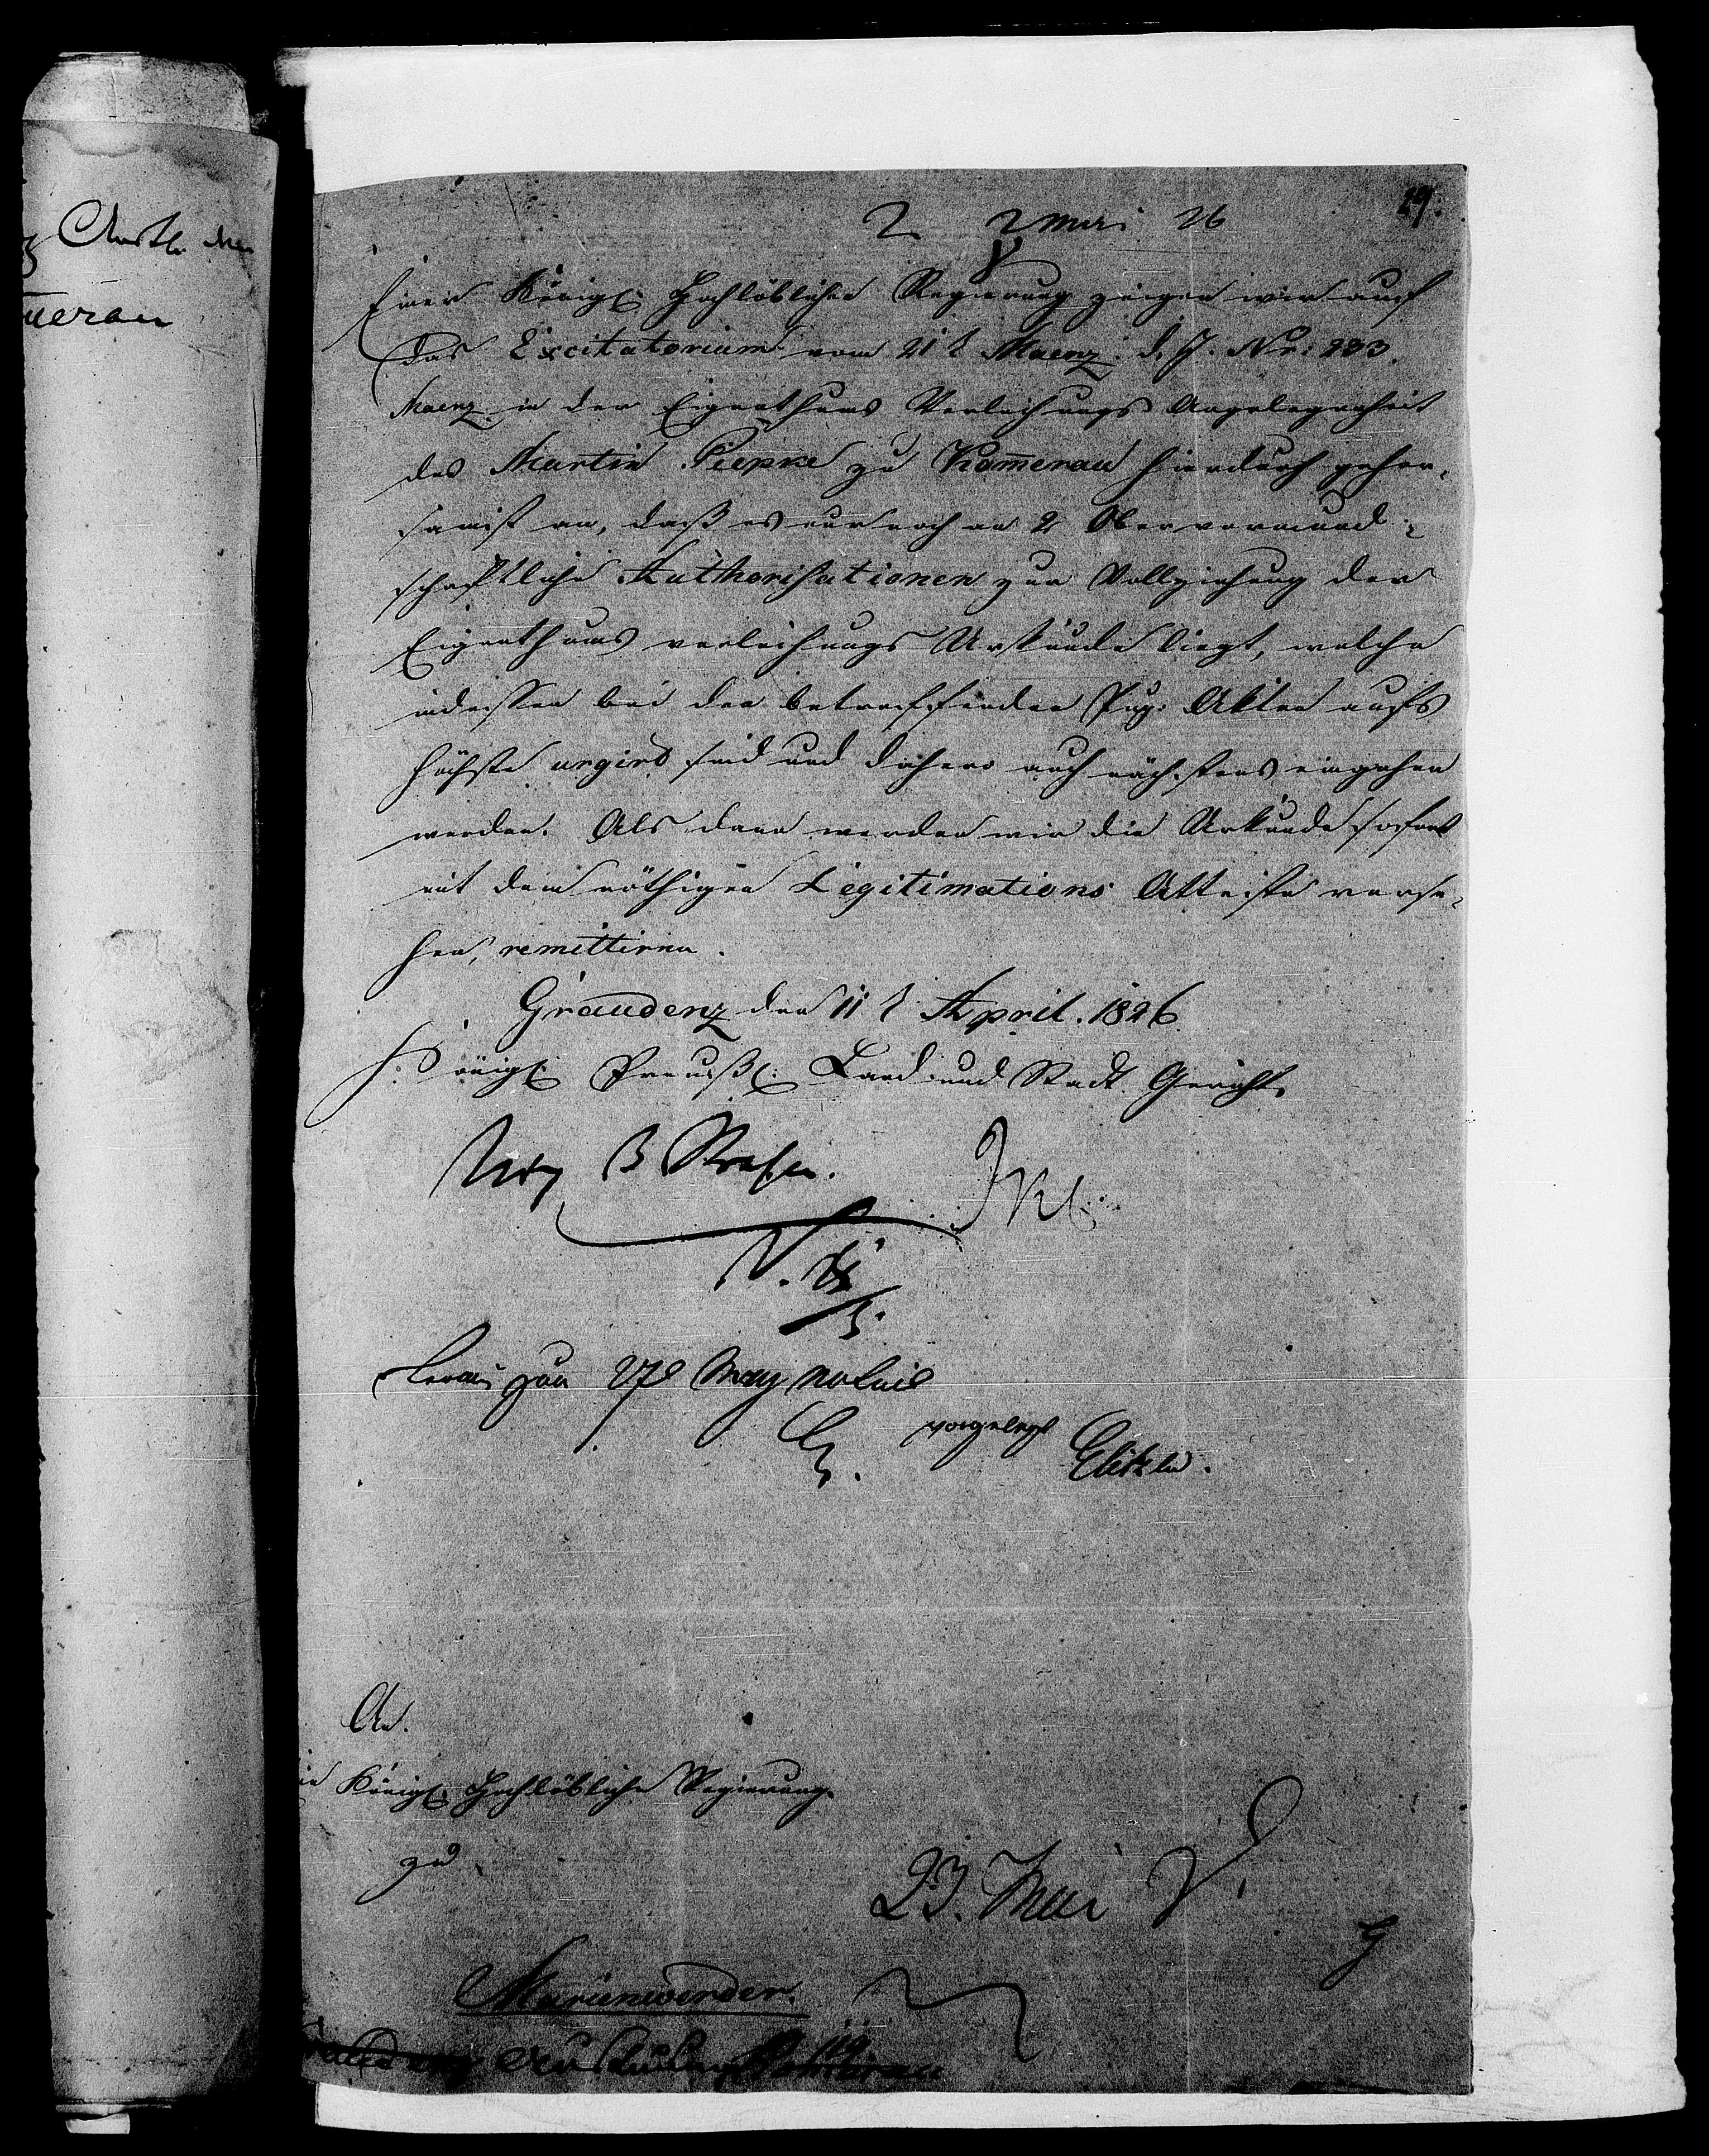 29.
2 2 Mai 26
Einer Königl: Hochlöblichen Regierung zeigen wir auf
das Excitatorium vom 21 t Maerz. d. J. Nr: 233.
Maerz in der Eigenthums Verleihungs Angelegenheit
des Martin Piepke zu Kom̄erau hierdurch gehor-
samst an, daß es nur noch an 2 Obervormund-
schaftliche Authorisationen zur Vollziehung der
Eigenthums verleihungs Urkunde liegt, welche
indessen bei den betreffenden Pup: Akten aufs
höchste urgirt sind und dahero auch nächstens eingehen
werden. Als dann werden wir die Urkunde sofort
mit dem nöthigen Legitimations Atteste verse-
hen, remittiren.
Graudenz den 11 t April. 1826
Königl: Preuß: Land und Stadt Gericht.
zum 27t May
vorgelegt
An.
die Königl: Hochlöbliche Regierung
zu
23. Mai
Marienwerder.
Amtl.
merau